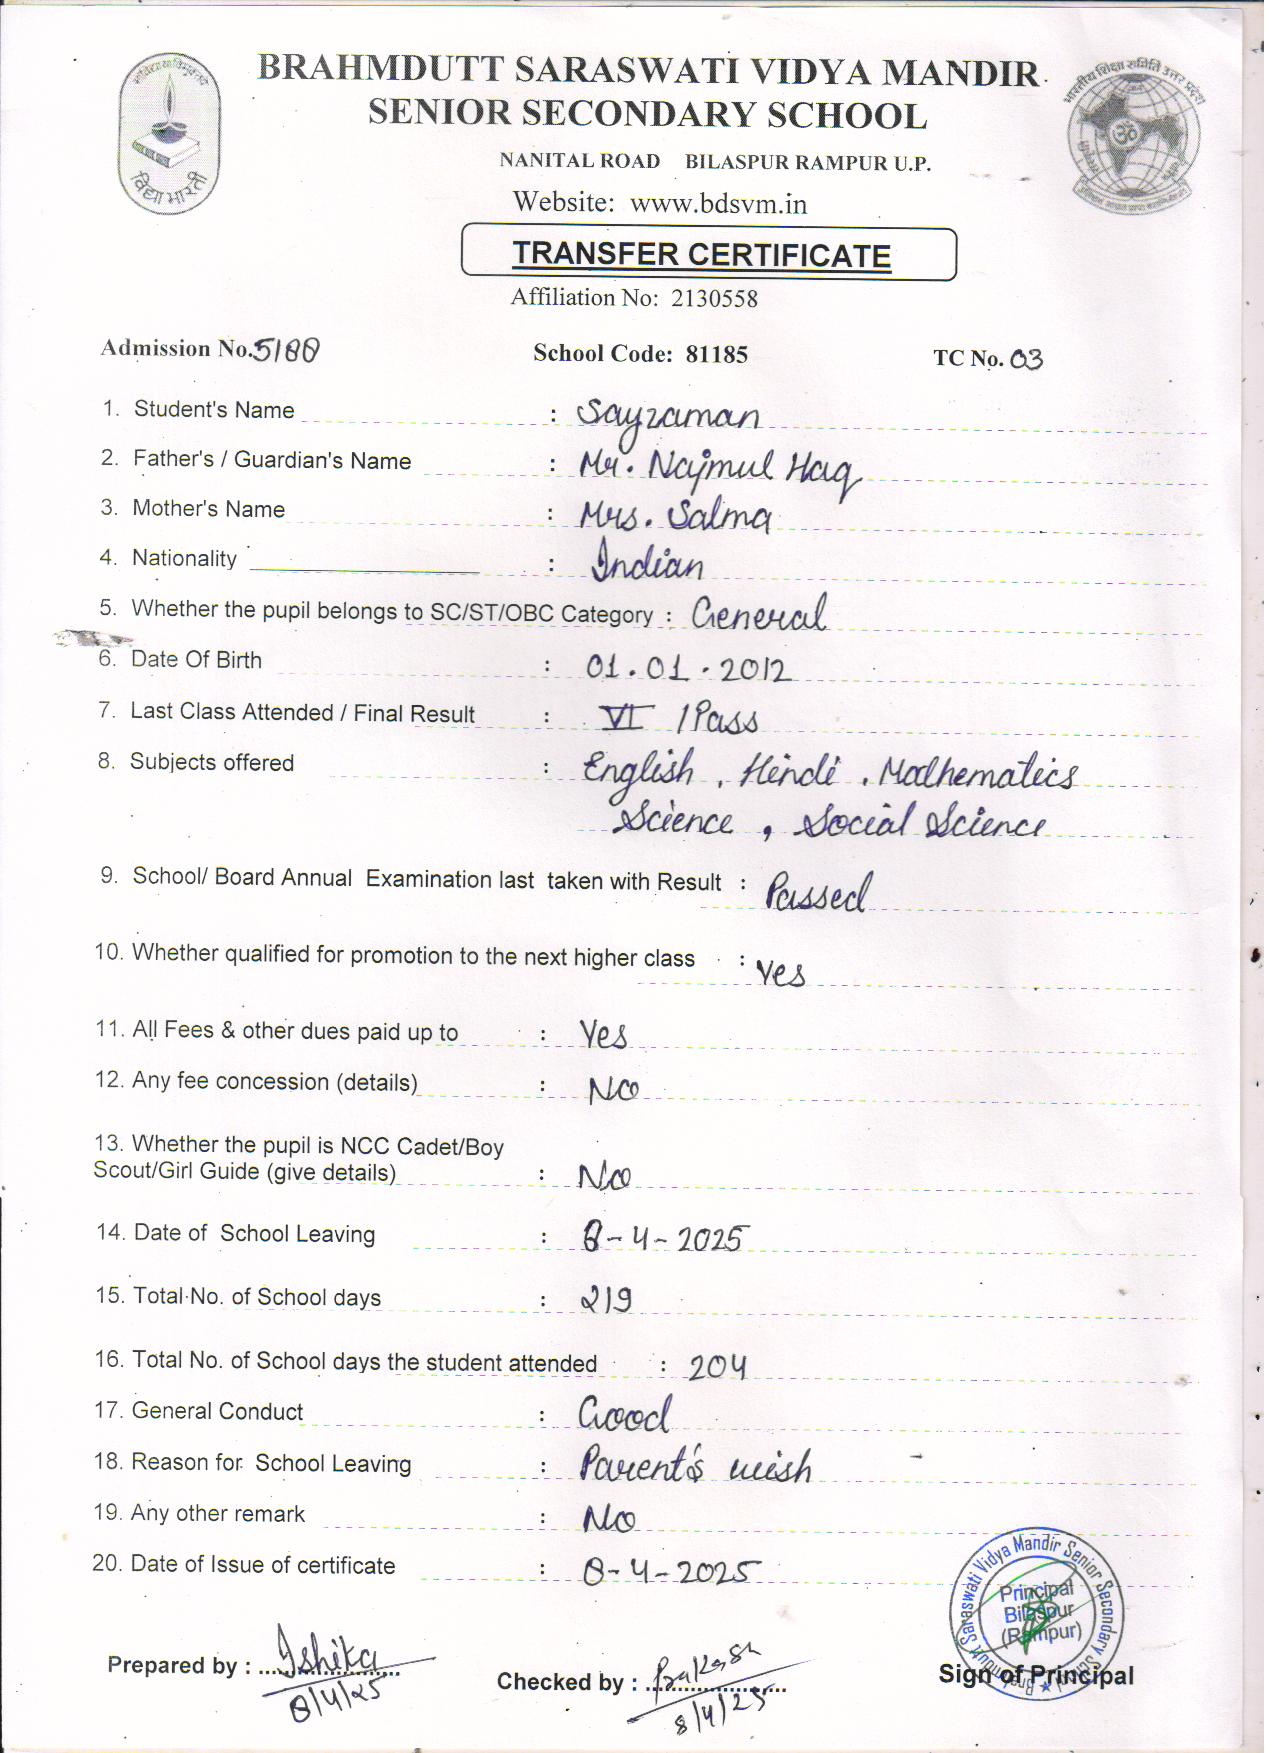 BRAHMDUTT SARASWATI VIDYA MANDIR
SENIOR SECONDARY SCHOOL
NANITAL ROAD BILASPUR RAMPUR U.P.
Website: www.bdsvm.in
विद्या भारती
भारतीय शिक्षा समिति उत्तर प्रदेश
TRANSFER CERTIFICATE
Affiliation No: 2130558
Admission No. 5188 School Code: 81185 TC No. 03
1. Student's Name : Sayzaman
2. Father's / Guardian's Name : Mr. Najmul Haq
3. Mother's Name : Mrs. Salma
4. Nationality : Indian
5. Whether the pupil belongs to SC/ST/OBC Category : General
6. Date Of Birth : 01.01.2012
7. Last Class Attended / Final Result : VI / Pass
8. Subjects offered : English, Hindi, Mathematics
Science, Social Science
9. School/ Board Annual Examination last taken with Result : Passed
10. Whether qualified for promotion to the next higher class : Yes
11. All Fees & other dues paid up to : Yes
12. Any fee concession (details) : No
13. Whether the pupil is NCC Cadet/Boy
Scout/Girl Guide (give details) : No
14. Date of School Leaving : 8-4-2025
15. Total No. of School days : 219
16. Total No. of School days the student attended : 204
17. General Conduct : Good
18. Reason for School Leaving : Parent's wish
19. Any other remark : No
20. Date of Issue of certificate : 8-4-2025
Brahmdutt Saraswati Vidya Mandir Senior Secondary School
Principal
Bilaspur
(Rampur)
Prepared by : Ishika
8/4/25
Checked by : Prakash
8/4/25
Sign of Principal